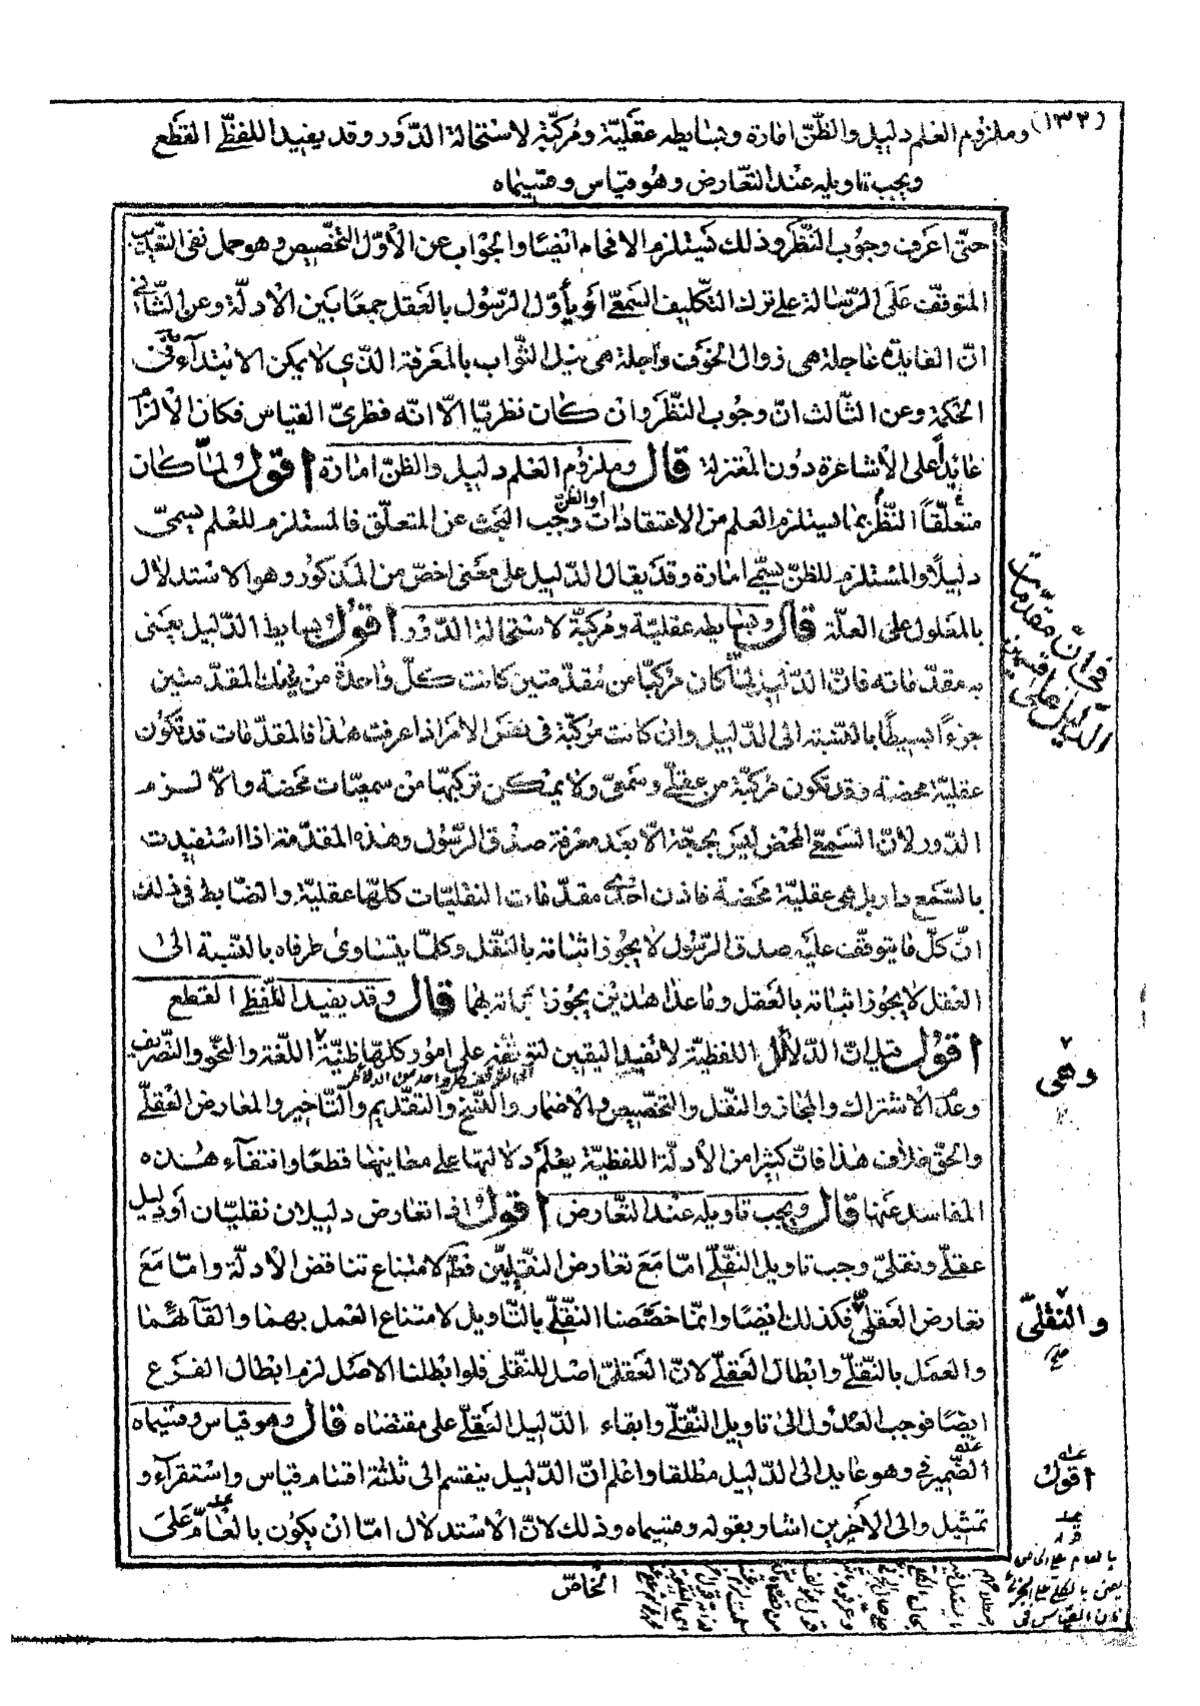 (١٣٢) وملزوم العلم دليل والظنّ امارة وبسايطه عقليّة ومركبّة لاستحالة الدّور وقد يفيد اللفظّي القطع
ويجب تاويله عند التّعارض وهو قياس وقسيماه
حتّى اعرف وجوب النّظر وذلك يستلزم الافحام ايضًا والجواب عن الأوّل التخصيص وهو حمل نفى التعذيب
المتوقّف على الرّسالة على ترك التّكليف السّمعىّ او يأوّل الرّسول بالعقل جمعًا بين الأدلّة وعن الثّانى
انّ الفايدة عاجلة هى زوال الخوف واجلة هى نيل الثّواب بالمعرفة الذّى لا يمكن الابتدآء به فى
الحكمة وعن الثّالث انّ وجوب النّظر وان كان نظريّا الّا انّه فطرىّ القياس فكان الالزام
عايدًا على الأشاعرة دون المعتزلة قال وملزوم العلم دليل والظنّ امارة اقول لمّا كان
متعلّقًا النّظر بما يستلزم العلم من الاعتقادات او الظنّ وجب البحث عن المتعلّق فالمستلزم للعلم يسمّى
دليلًا والمستلزم للظنّ يسمّى امارة وقد يقال الدّليل على معنى اخصّ من المذكور وهو الاستدلال
بالمعلول على العلّة قال وبسايطه عقليّة ومركبّة لاستحالة الدّور اقول بسايط الدّليل يعنى
به مقدّماته فانّ الدّليل لمّا كان مركبًا من مقدّمتين كانت كلّ واحدة من تينك المقدّمتين
جزءًا بسيطًا بالنسبة الى الدّليل وان كانت مركّبة فى نفس الامر اذا عرفت هذا فالمقدّمات قد تكون
عقليّة محضة وقد تكون مركّبة من عقلىّ وسمعىّ ولا يمكن تركيبها من سمعيّات محضة والّا لزم
الدّور لانّ السّمعىّ المحض ليس بحجّة الّا بعد معرفة صدق الرّسول وهذه المقدّمة اذا استفيدت
بالسّمع دار بل هى عقليّة محضة فاذن احدى مقدّمات النقليّات كلّها عقليّة والضّابط فى ذلك
انّ كلّ ما يتوقّف عليه صدق الرّسول لا يجوز اثباته بالنّقل وكلّ ما يتساوى طرفاه بالنّسبة الى
العقل لا يجوز اثباته بالعقل وما عدا هذين يجوز اثباته بهما قال وقد يفيد اللّفظىّ القطع
اقول قيل انّ الدّلائل اللفظيّة لا تفيد اليقين لتوقّفه على امور كلّها ظنيّة اللّغة والنّحو والتّصريف
وعدم الاشتراك والمجاز والنّقل والتّخصيص والاضمار والنّسخ والتّقديم والتّاخير والمعارض العقلىّ
والحقّ خلاف هذا فانّ كثيرا من الأدلّة اللفظيّة يعلم دلالتها على معانيها قطعًا وانتفآء هذه
المفاسد عنها قال ويجب تاويله عند التّعارض اقول اذا تعارض دليلان نقليّان او دليل
عقلىّ ونقلىّ وجب تاويل النّقلىّ امّا مع تعارض النّقليّين فظاهر لامتناع تناقض الأدلّة وامّا مع
تعارض العقلىّ فكذلك ايضًا وانّما خصّصنا النّقلىّ بالتّاويل لامتناع العمل بهما والقآئهما
والعمل بالنّقلىّ وابطال العقلىّ لانّ العقلىّ اصل للنّقلى فلو ابطلنا الاصل لزم ابطال الفرع
ايضًا فوجب العدول الى تاويل النّقلىّ وابقاء الدّليل العقلىّ على مقتضاه قال وهو قياس وقسيماه
الضّمير فى وهو عايد الى الدّليل مطلقا واعلم انّ الدّليل ينقسم الى ثلثة اقسام قياس واستقرآء و
تمثيل والى الآخرين اشار بقوله وقسيماه وذلك لانّ الاستدلال امّا ان يكون بالعامّ على
الخاصّ
فى انّ مقدّمات
الدليل على قسمين
وهى
والنّقلىّ
اقول
بالعام على الخاص
يعنى بالكلى على الجزئى
فان القياس فى